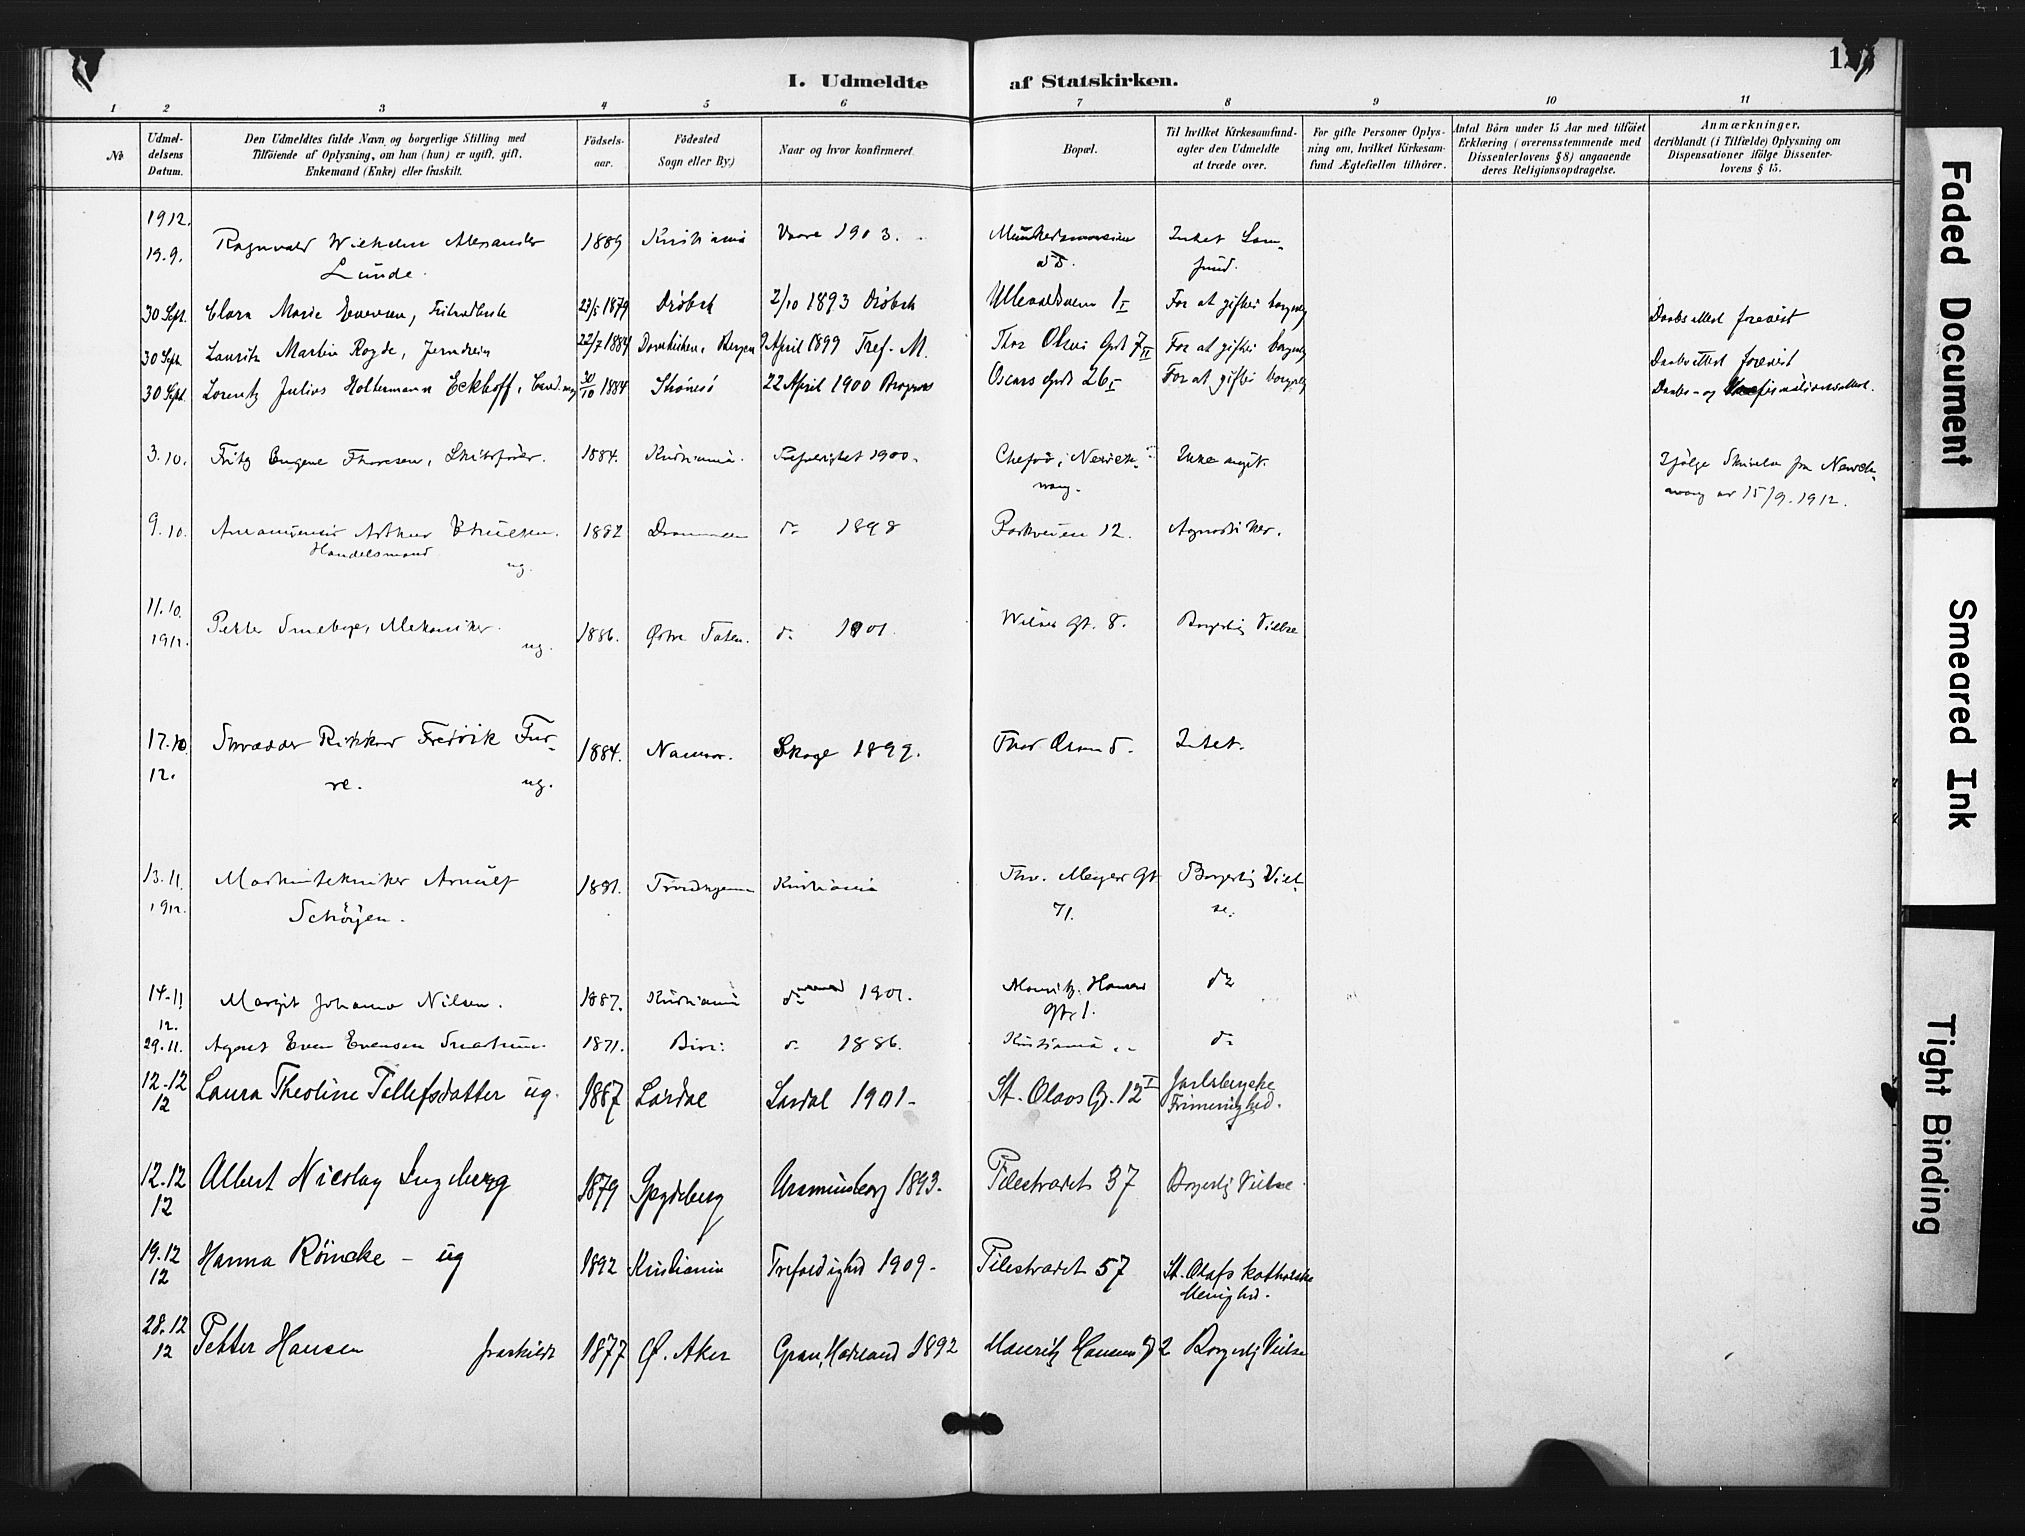 I. Udmeldte af Statskirken.
1 2 3 4 5 6 7 8 9 10 11
No
Udmel-
delsens
Datum.
Den Udmeldtes fulde Navn og borgerlige Stilling med
Tilföiende af Oplysning, om han (hun) er ugift, gift,
Enkemand (Enke) eller fraskilt.
Födsels-
aar.
Födested
Sogn eller By)
Naar og hvor konfirmeret
Bopæl.
Til hvilket Kirkesamfund-
agter den Udmeldte
at træde over.
For gifte Personer Oplys-
ning om, hvilket Kirkesam-
fund Ægtefællen tilhörer.
Antal Börn under 15 Aar med tilföiet
Erklæring (overensstemmende med
Dissenterlovens § 8) angaaende
deres Religionsopdragelse.
Anmærkninger,
deriblandt (i Tilfælde) Oplysning om
Dispensationer ifölge Dissenter-
lovens § 15.
1912.
19.9. Ragnvald Wilhelm Alexander 1889 Kristiania 1903. Intet Sam-
Lunde. fund.
30 Sept. Clara Marie 23/5 1879 Drøbak 2/10 1893 Drøbak Ullevaalsveien 1 I For at giftes borgerlig Daabsattest forevist
30 Sept. Lauritz Martin Royde, Jerndreier 22/7 1884 Domkirken, Bergen 9 April 1899 Tref. M. Thor Olsens Gade 7 II For at giftes borgerlig Daabsattest forevist
30 Sept. Lorentz Julius Holtermann Eckhoff, 30/10 1884 22 April 1900 Oscars Gade 26 I For at giftes borgerlig Daabs- og Konfirmationsattest.
3.10. Fritz Eugene Thoresen, Skibsfører. 1884. Kristiania. Trefoldighet 1900. Chefoo, Ikke angit. Ifølge Skrivelse fra
av 15/9. 1912.
9.10. Arthur 1882 Drammen do 1898 Parkveien 12. Agnostiker.
Handelsmand
ug.
11.10.
1912. Petter Mekaniker. 1886. Østre Toten. do 1901. Gt. 8. Borgerlig Vielse
ug.
17.10. Skrædder Rikkard Fredrik Fur- 1884. Namsos. Skage 1899. Thor Olsens 5. Intet.
12. re. ug.
13.11. Maskintekniker Arnulf 1881. Trondhjem Kristiania Thv. Meyers Gt Borgerlig Viel-
1912. Schöyen. 71. se.
14.11 Margit Johanna Nilsen. 1887. Kristiania do 1901. Mauritz Hansens do
12. Gt. 1.
29.11. Agent Even Evensen 1871. Biri. do 1886. Kristiania do
12.12 Laura Theoline Tellefsdatter ug. 1887 Lardal Lardal 1901. St. Olavs G. 12 I Jarlsbergske
12 Frimenighed.
12.12 Albert Nicolay Ingeberg 1879 Spydeberg 1893. Pilestrædet 37 Borgerlig Vielse
12
19.12 Hanna Röincke - ug 1892 Kristiania Trefoldighed 1909. Pilestrædet 57 St. Olafs katholske
12 Menighed.
28.12 Petter Hansen fraskildt 1877 Ø. Aker Gran, Hadeland 1892 Mauritz Hansens G 2 Borgerlig Vielse
12
Faded Document
Smeared Ink
Tight Binding